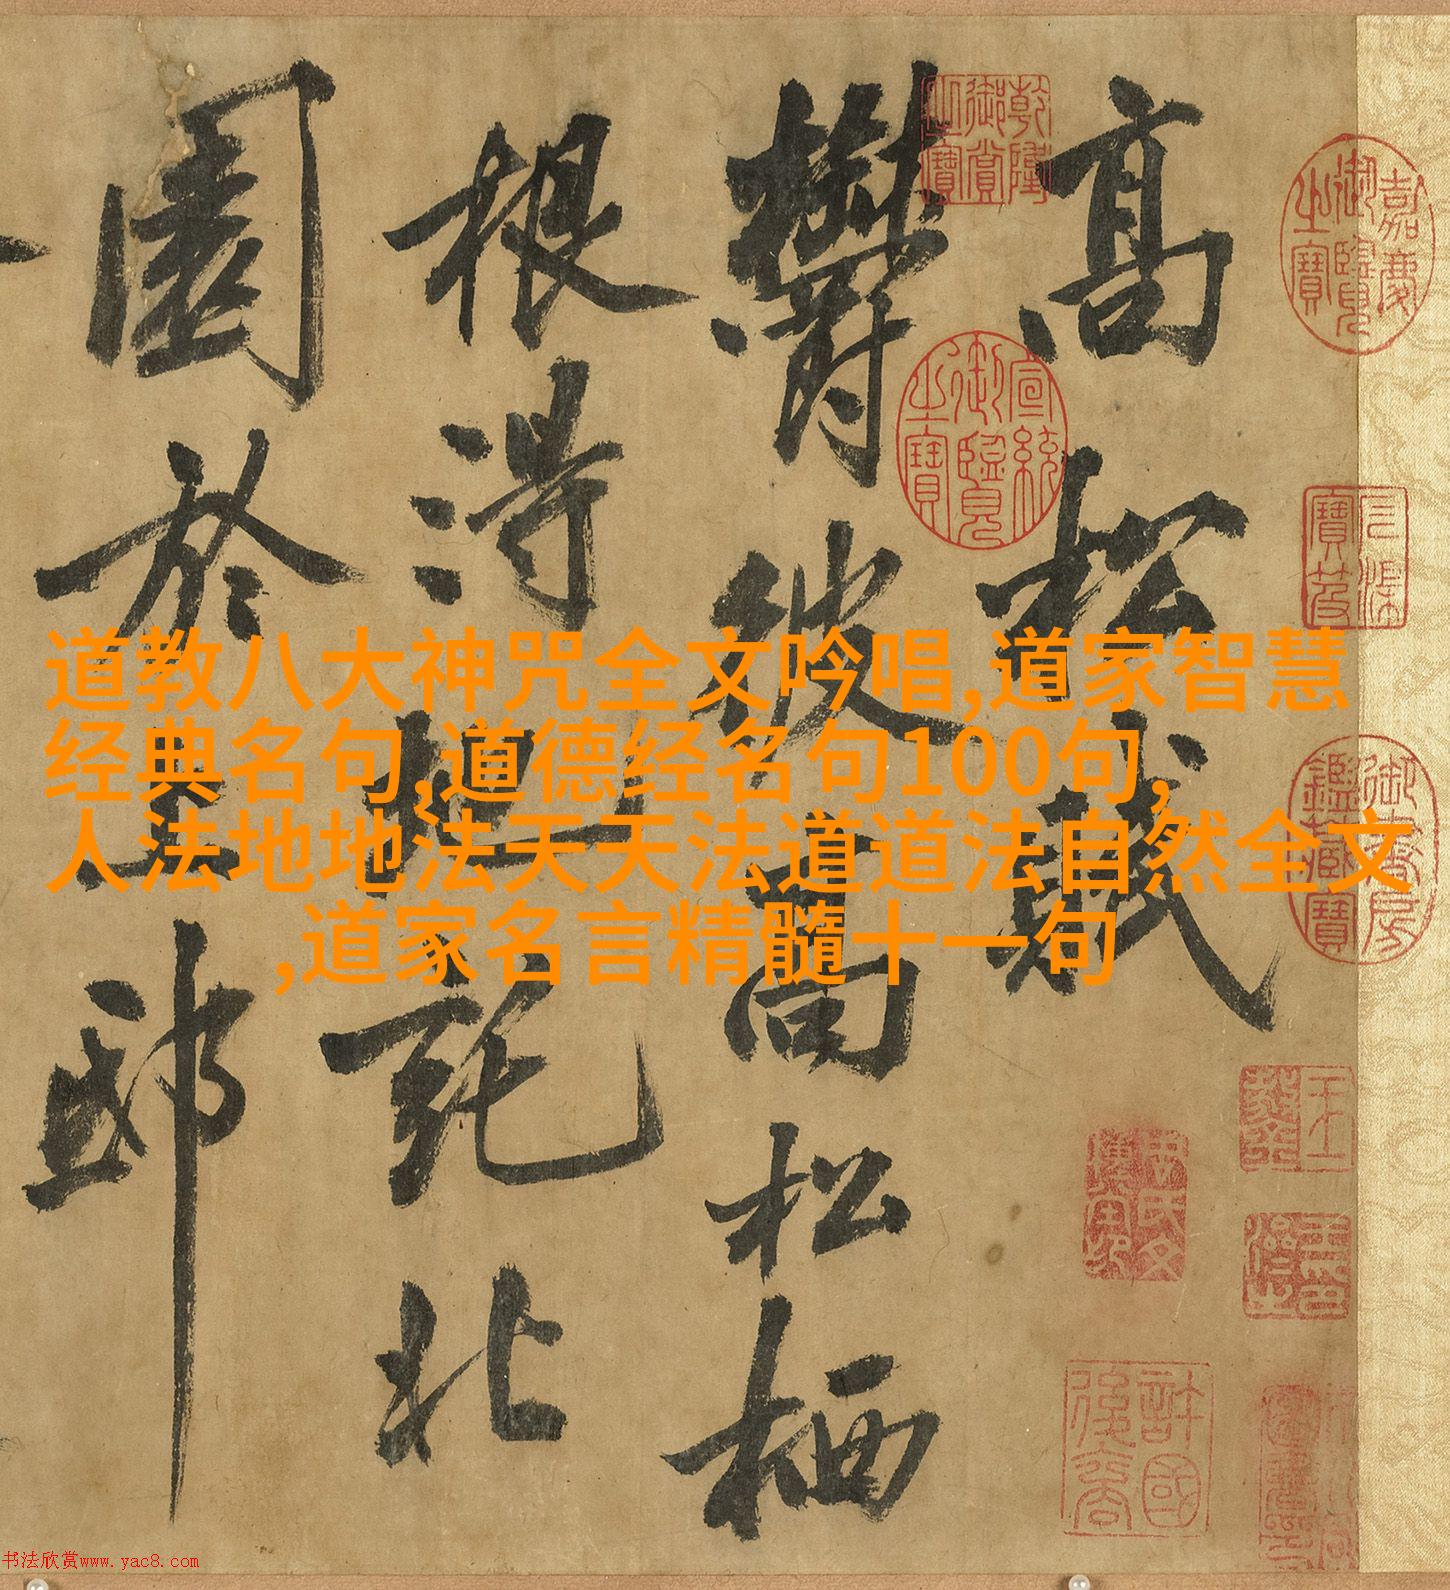 道教八大神咒全文吟唱,道家智慧
经典名句,道德经名句100句,
人法地地法天天法道道法自然全文
,道家名言精髓十一句
高松賦
鬱彼高松栖
根得地託北
園於上邸
乾隆御賞之寶
嘉慶御覽之寶
宣統御覽之寶
三希堂精鑑璽
書法欣赏www.yac8.com